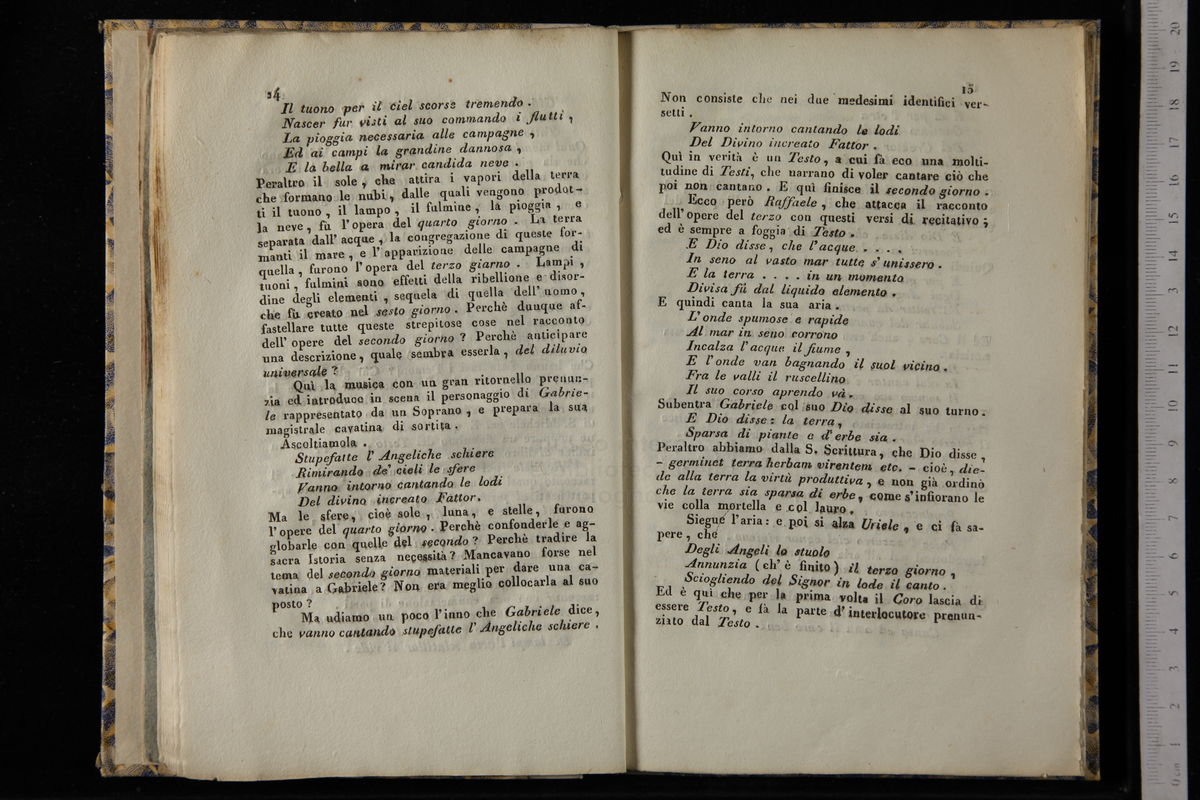 14
Il tuono per il ciel scorse tremendo .
Nascer fur visti al suo commando i flutti ,
La pioggia necessaria alle campagne ,
Ed ai campi la grandine dannosa ,
E la bella a mirar candida neve .
Peraltro il sole , che attira i vapori della terra
che formano le nubi , dalle quali vengono prodot-
ti il tuono , il lampo , il fulmine , la pioggia , e
la neve , fu l'opera del quarto giorno . La terra
separata dall' acque , la congregazione di queste for-
manti il mare , e l' apparizione delle campagne di
quella , furono l' opera del terzo giarno . Lampi ,
tuoni , fulmini sono effetti della ribellione e disor-
dine degli elementi , sequela di quella dell' uomo ,
che fù creato nel sesto giorno . Perchè dunque af-
fastellare tutte queste strepitose cose nel racconto
dell' opere del secondo giorno ? Perchè anticipare
una descrizione , quale sembra esserla , del diluvio
universale ?
Quì la musica con un gran ritornello prenun-
zia ed introduce in scena il personaggio di Gabrie-
le rappresentato da un Soprano , e prepara la sua
magistrale cavatina di sortita .
Ascoltiamola .
Stupefatte l' Angeliche schiere
Rimirando de' cieli le sfere
Vanno intorno cantando le lodi
Del divino increato Fattor .
Ma le sfere , cioè sole , luna , e stelle , furono
l' opere del quarto giorno . Perchè confonderle e ag-
globarle con quelle del secondo ? Perchè tradire la
sacra Istoria senza necessità ? Mancavano forse nel
tema del secondo giorno materiali per dare una ca-
vatina a Gabriele ? Non era meglio collocarla al suo
posto ?
Ma udiamo un poco l'inno che Gabriele dice ,
che vanno cantando stupefatte l' Angeliche schiere .
15
Non consiste che nei due medesimi identifici ver-
setti .
Vanno intorno cantando le lodi
Del Divino increato Fattor .
Quì in verità è un Testo , a cui fà eco una molti-
tudine di Testi , che narrano di voler cantare ciò che
poi non cantano . E quì finisce il secondo giorno .
Ecco però Raffaele , che attacca il racconto
dell' opere del terzo con questi versi di recitativo ;
ed è sempre a foggia di Testo .
E Dio disse , che l'acque . . . .
In seno al vasto mar tutte s' unissero .
E la terra . . . . in un momento
Divisa fù dal liquido elemento .
E quindi canta la sua aria .
L' onde spumose e rapide
Al mar in seno corrono
Incalza l'acque il fiume ,
E l'onde van bagnando il suol vicino .
Fra le valli il ruscellino
Il suo corso aprendo và .
Subentra Gabriele col suo Dio disse al suo turno .
E Dio disse : la terra ,
Sparsa di piante e d'erbe sia .
Peraltro abbiamo dalla S. Scrittura , che Dio disse ,
- germinet terra herbam virentem etc. - cioè , die-
de alla terra la virtù produttiva , e non già ordinò
che la terra sia sparsa di erbe , come s'infiorano le
vie colla mortella e col lauro .
Siegue l'aria : e poi si alza Uriele , e ci fà sa-
pere , che
Degli Angeli lo stuolo
Annunzia ( ch' è finito ) il terzo giorno ,
Sciogliendo del Signor in lode il canto .
Ed è quì che per la prima volta il Coro lascia di
essere Testo , e fà la parte d' interlocutore prenun-
ziato dal Testo .